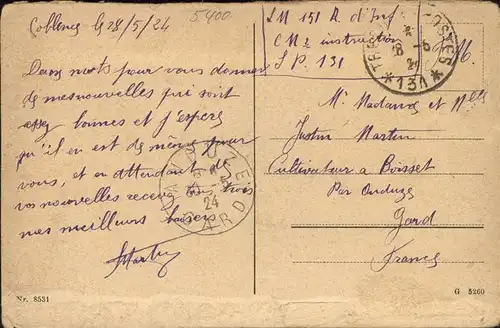 Coblence le 28/5/24
5400
Deux mots pour vous donner
de mes nouvelles qui sont
assez bonnes et j'espère
qu'il en est de même pour
vous, et en attendant de
vos nouvelles recevez trois
mes meilleurs baisers
Martin
151 R. d'Inf
Cie instruction
S.P. 131
TRÉSOR POSTES
* 131 *
GARD
24
Mr Madame et Melle
Justin Martin
Cultivateur à Boisset
Par Anduze
Gard
France
Nr. 8531
G 5260